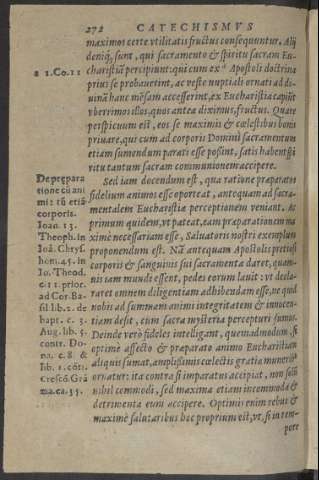 272 CATECHISMVS
maximos certe vtilitatis fructus consequuntur. Alij
deniq, sunt, qui sacramento & spiritu sacram Eu-
a 1.Co.11
charistiã percipiunt: qui cum exᵃ Apostoli doctrina
prius se probauerint, ac veste nuptiali ornati ad di-
uinã hanc mẽsam accesserint, ex Eucharistia capiũt
vberrimos illos, quos antea diximus, fructus. Quare
perspicuum est, eos se maximis & cœlestibus bonis
priuare, qui cum ad corporis Domini sacramentum
etiam sumendum parati esse possint, satis habent spi-
ritu tantum sacram communionem accipere.
De prępara
tione cũ ani
mi: tũ etiã
corporis.
Ioan. 13.
Theoph. in
Ioã. Chrys.
hom. 45. in
Io. Theod.
c. 11. prior.
ad Cor. Ba-
sil lib. 2. de
bapt. c. 3.
Aug. lib. 5.
contr. Do-
na. c. 8. &
lib. 1. cõtr.
Crescõ. Grã
ma. ca. 35.
Sed iam docendum est, qua ratione præparatos
fidelium animos esse oporteat, antequam ad sacra-
mentalem Eucharistiæ perceptionem veniant. Ac
primum quidem, vt pateat, eam præparationem ma
ximè necessariam esse, Saluatoris nostri exemplum
proponendum est. Nã antequam Apostolis pretiosi
corporis & sanguinis sui sacramenta daret, quam-
uis iam mundi essent, pedes eorum lauit: vt decla-
raret omnem diligentiam adhibendam esse, ne quid
nobis ad summam animi integritatem & innocen-
tiam desit, cum sacra mysteria percepturi sumus.
Deinde verò fideles intelligant, quemadmodum, si
optimè affecto & præparato animo Eucharistiam
aliquis sumat, amplissimis cœlestis gratiæ muneribus
ornatur: ita contra si imparatus accipiat, non solũ
nihil commodi, sed maxima etiam incommoda &
detrimenta eum accipere. Optimis enim rebus &
maximè salutaribus hoc proprium est, vt, si in tem-
pore